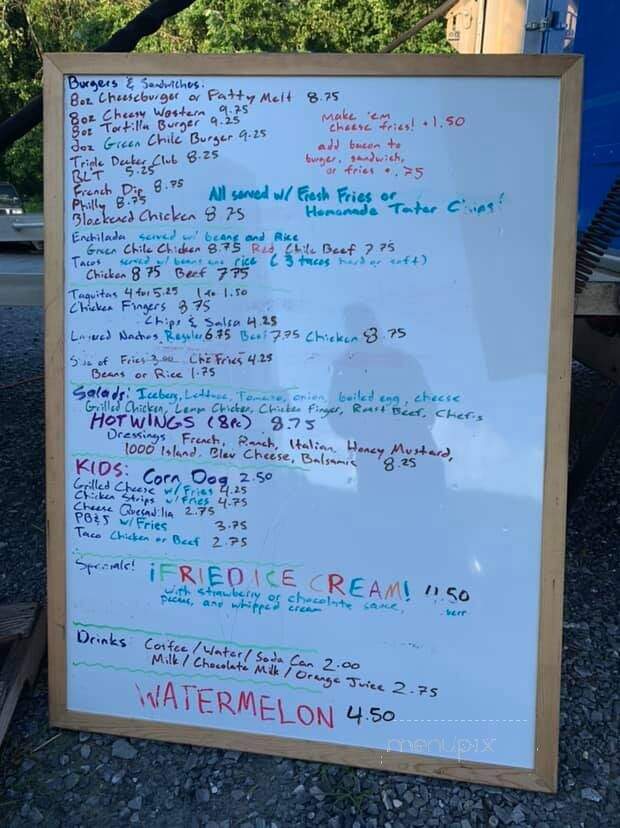 Burgers & Sandwiches:
8oz Cheeseburger or Patty Melt 8.75
8oz Cheesy Western 9.75
8oz Tortilla Burger 9.25
8oz Green Chile Burger 9.25
Triple Decker Club 8.25
BLT 5.25
French Dip 8.75
Philly 8.75
Blackened Chicken 8.75
make 'em
cheese fries! +1.50
add bacon to
burger, sandwich,
or fries + .75
All served w/ Fresh Fries or
Homemade Tater Chips!
Enchilada served w/ beans and Rice
Green Chile Chicken 8.75 Red Chile Beef 7.75
Tacos served w/ beans and rice (3 tacos hard or soft)
Chicken 8.75 Beef 7.75
Taquitos 4 for 5.25 1 for 1.50
Chicken Fingers 8.75
Chips & Salsa 4.25
Layered Nachos Regular 6.75 Beef 7.75 Chicken 8.75
Side of Fries 3.00 Chz Fries 4.25
Beans or Rice 1.75
Salads: Iceberg, Lettuce, Tomato, onion, boiled egg, cheese
Grilled Chicken, Lemon Chicken, Chicken Finger, Roast Beef, Chefs
HOT WINGS (8pc) 8.75
Dressings French, Ranch, Italian, Honey Mustard,
1000 Island, Bleu Cheese, Balsamic 8.25
KIDS: Corn Dog 2.50
Grilled Cheese w/ Fries 4.25
Chicken Strips w/ Fries 4.75
Cheese Quesadilla 2.75
PB&J w/ Fries 3.75
Taco Chicken or Beef 2.75
Specials! ¡FRIED ICE CREAM! 4.50
with strawberry or chocolate sauce,
pecans, and whipped cream
Drinks Coffee/Water/Soda Can 2.00
Milk/Chocolate Milk/Orange Juice 2.75
WATERMELON 4.50
menupix